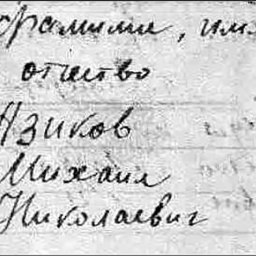 фамилие, им
отчество
Азиков
Михаил
Николаевич